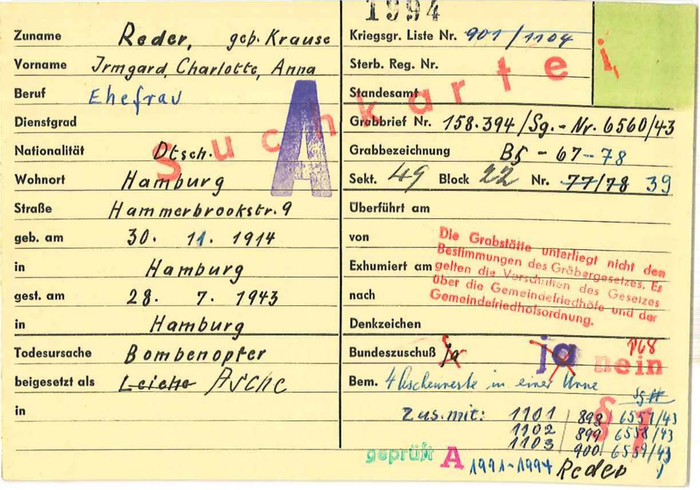 1994
Zuname Reder, geb. Krause
Vorname Irmgard, Charlotte, Anna
Beruf Ehefrau
Dienstgrad
Nationalität Dtsch.
Wohnort Hamburg
Straße Hammerbrookstr. 9
geb. am 30. 11. 1914
in Hamburg
gest. am 28. 7. 1943
in Hamburg
Todesursache Bombenopfer
beigesetzt als Leiche Asche
in
Suchkartei
A
Kriegsgr. Liste Nr. 901/1104
Sterb. Reg. Nr.
Standesamt
Grabbrief Nr. 158.394/Sg.-Nr. 6560/43
Grabbezeichnung B5 - 67 - 78
Sekt. 49 Block 22 Nr. 77/78 39
Überführt am
von
Exhumiert am
nach
Denkzeichen
Die Grabstätte unterliegt nicht den
Bestimmungen des Gräbergesetzes. Es
gelten die Vorschriften des Gesetzes
über die Gemeindefriedhöfe und der
Gemeindefriedhofsordnung.
Bundeszuschuß ja ja nein
Bem. 4 Aschenreste in einer Urne
§ 1
Zus. mit: 1101 / 898 6557/43
1102 / 899 6558/43
1103 / 900 6559/43
geprüft A 1991-1994 Reder